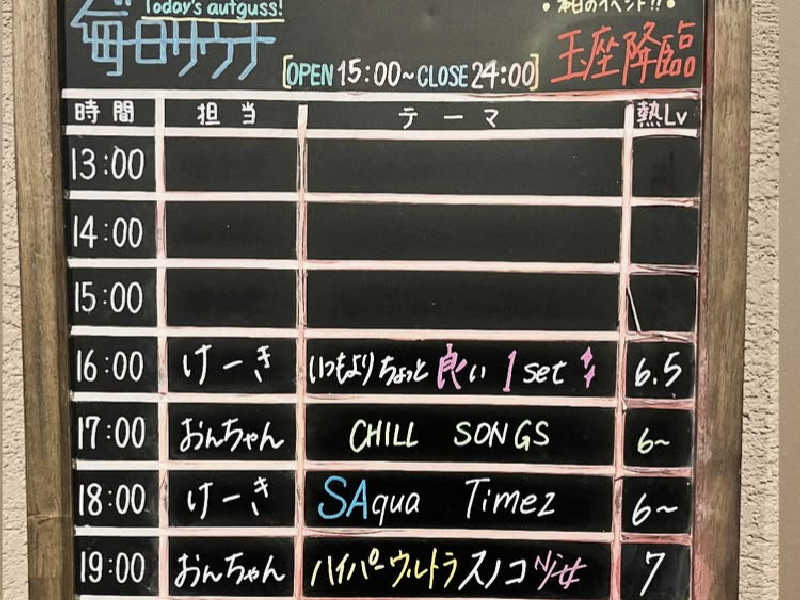 Today's aufguss!
毎日サウナ
・本日のイベント!!・
[OPEN 15:00~CLOSE 24:00]
玉座降臨
時間 担当 テーマ 熱Lv
13:00
14:00
15:00
16:00 けーき いつもよりちょっと良い1set 6.5
17:00 おんちゃん CHILL SONGS 6~
18:00 けーき SAqua Timez 6~
19:00 おんちゃん ハイパーウルトラスノコ 7